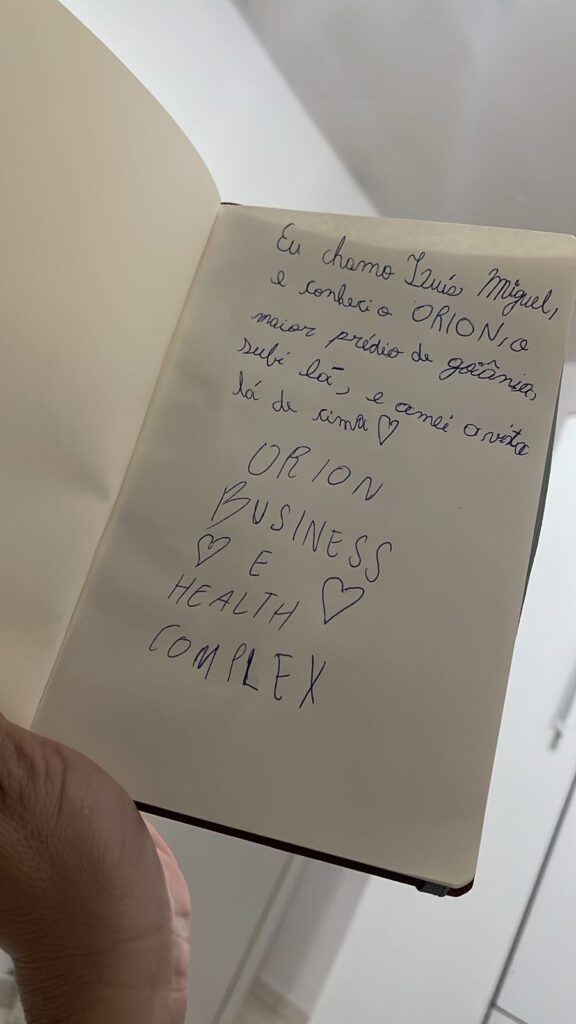 Eu chamo Luís Miguel,
e conheci o ORION, o
maior prédio de goiânia,
subi lá, e amei a vista
lá de cima ♡
ORION
BUSINESS
♡ E
HEALTH ♡
COMPLEX